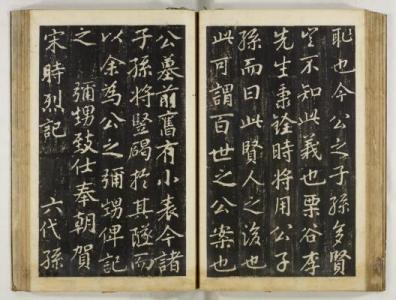 恥也今公之子孫多賢
豈不知此義也栗谷李
先生秉銓時將用公子
孫而曰此賢人之後也
此可謂百世之公案也
公墓前舊有小表今諸
子孫將豎碣於其隧而
以余爲公之彌甥俾記
之 彌甥致仕奉朝賀
宋時烈記 六代孫